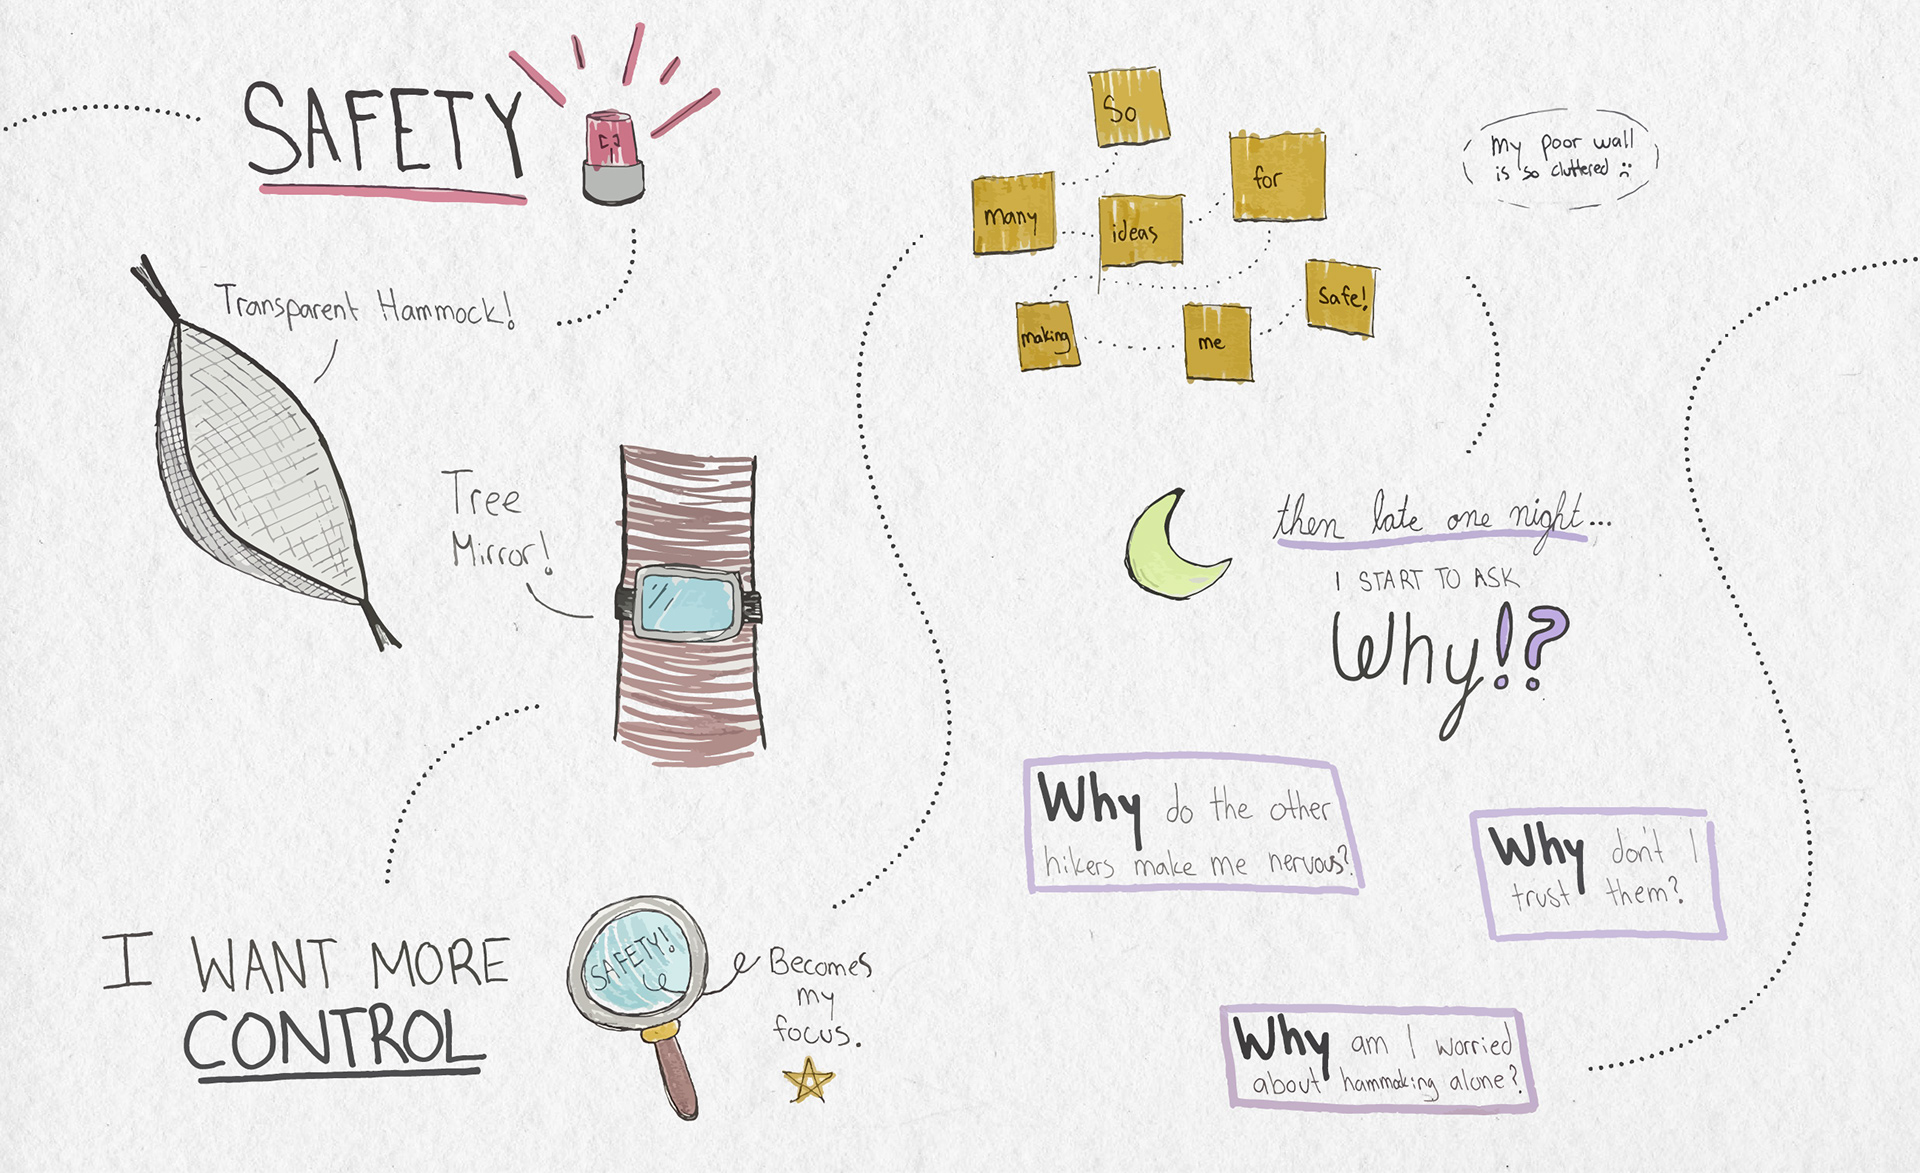 SAFETY
Transparent Hammock!
Tree
Mirror!
I WANT MORE
CONTROL
SAFETY!
Becomes
my
focus.
So
many
ideas
for
making
me
safe!
my poor wall
is so cluttered :(
then late one night...
I START TO ASK
Why!?
Why do the other
hikers make me nervous?
Why don't I
trust them?
Why am I worried
about hammocking alone?